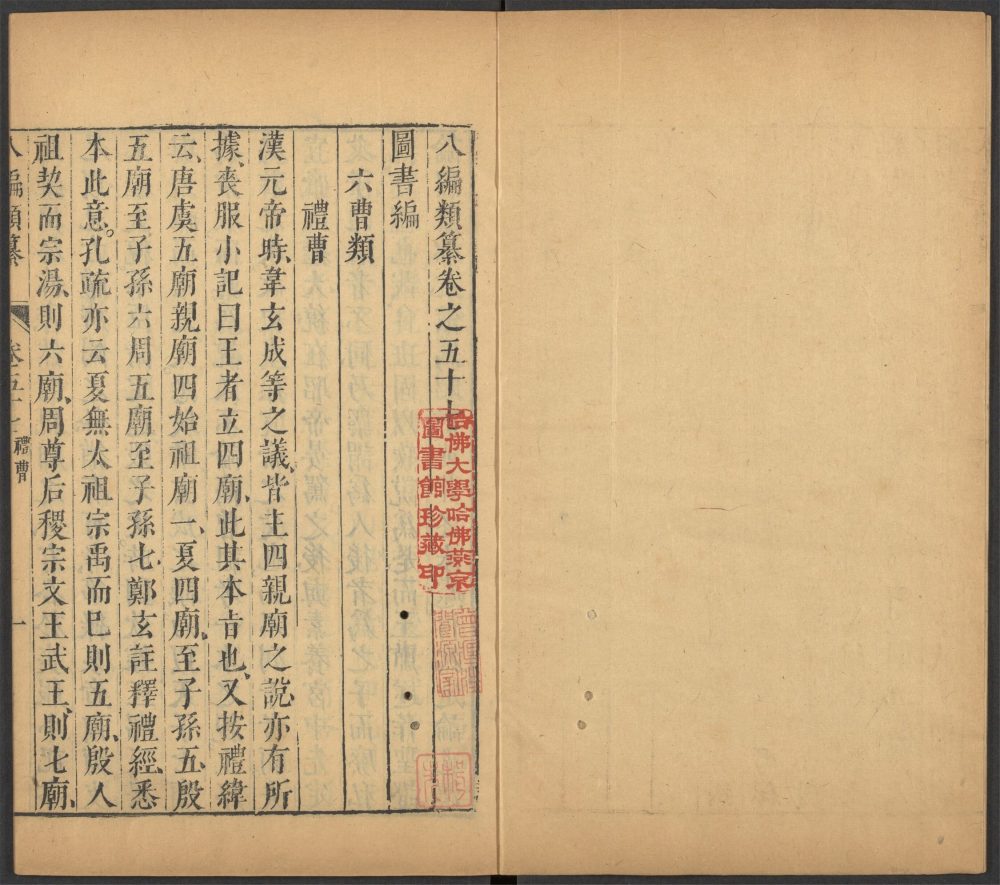 八編類纂卷之五十七
哈佛大學哈佛燕京
圖書館珍藏印
圖書編
六曹類
禮曹
漢元帝時、韋玄成等之議、皆主四親廟之說、亦有所
據、喪服小記曰王者立四廟、此其本㫖也、又按禮緯
云、唐虞五廟親廟四始祖廟一、夏四廟、至子孫五、殷
五廟至子孫六周五廟至子孫七、鄭玄註釋禮經、悉
本此意。孔疏亦云夏無太祖宗禹而巳則五廟、殷人
祖契而宗湯、則六廟、周尊后稷宗文王武王、則七廟、
八編類纂 卷五十七禮曹 一